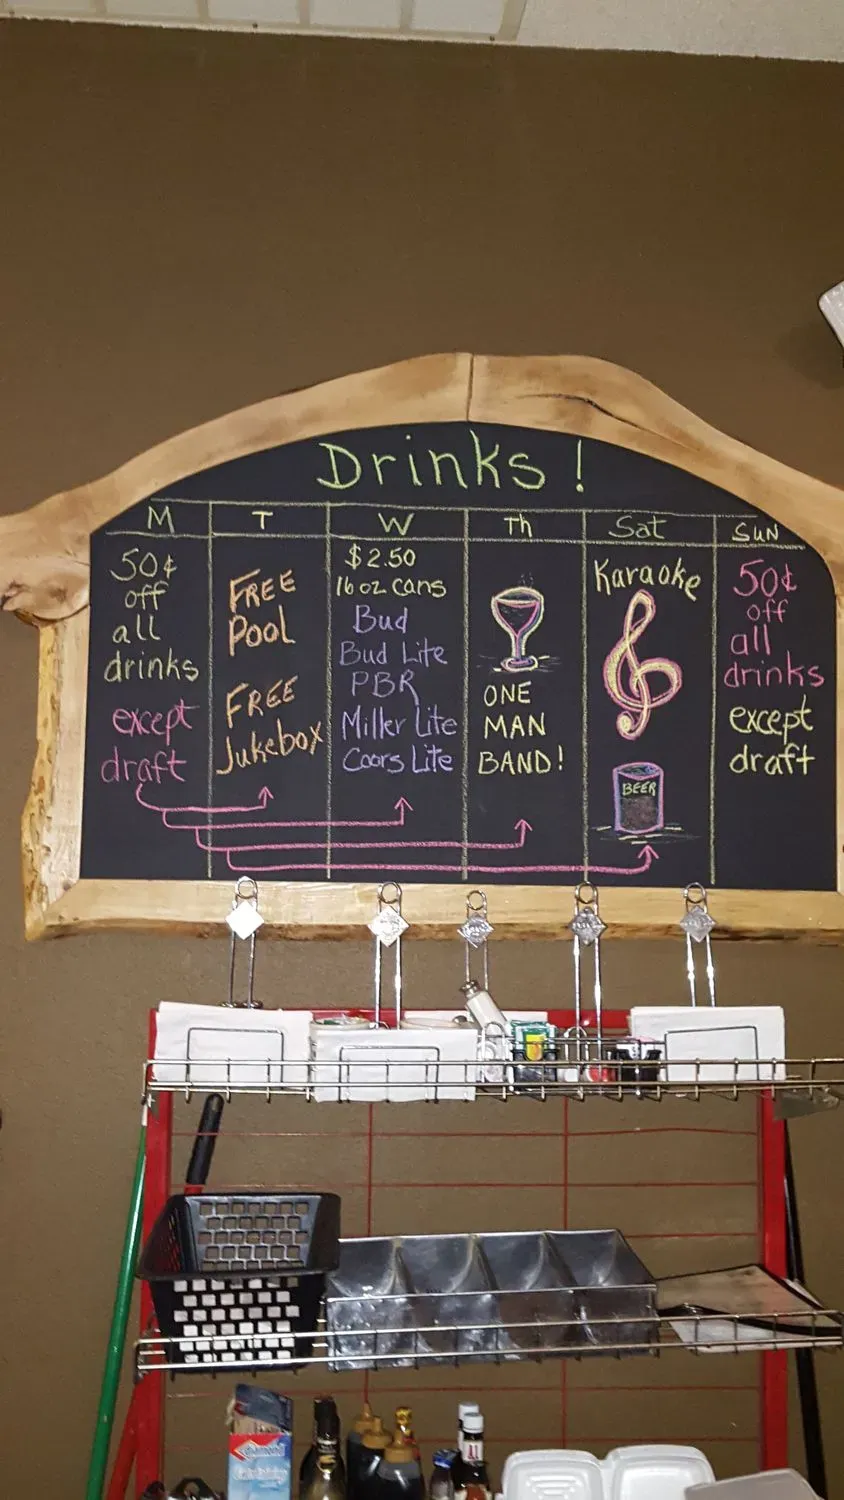 Drinks!
M
50¢
off
all
drinks
except
draft
T
FREE
Pool
FREE
Jukebox
W
$2.50
16 oz cans
Bud
Bud Lite
PBR
Miller Lite
Coors Lite
Th
ONE
MAN
BAND!
Sat
Karaoke
BEER
SUN
50¢
off
all
drinks
except
draft
diamond
A1